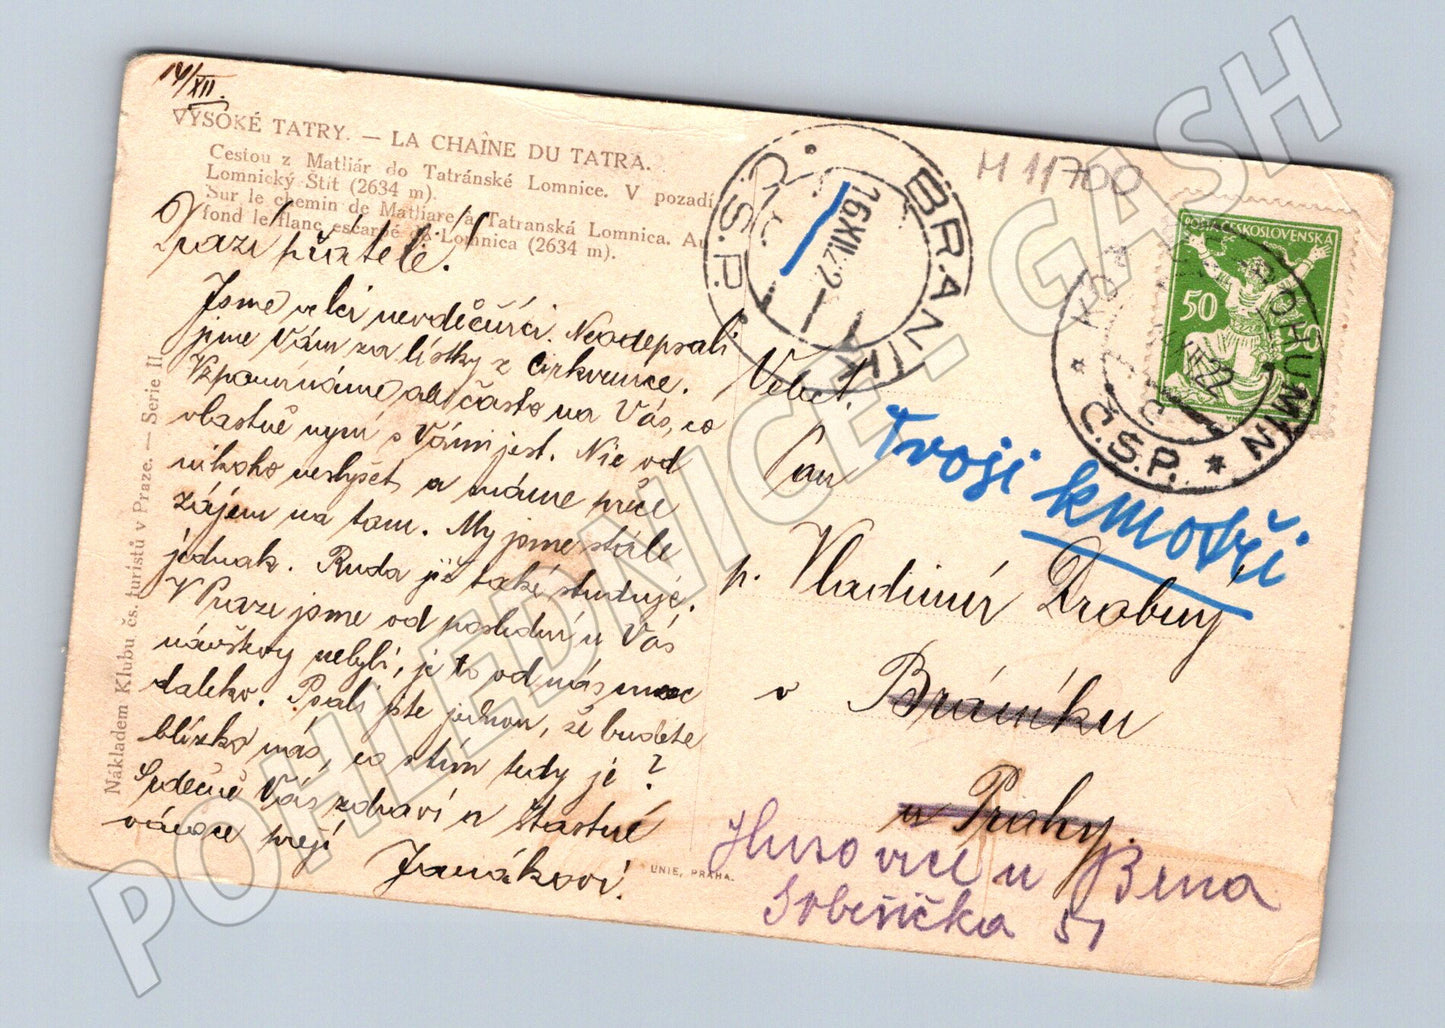 14/XII.
VYSOKÉ TATRY. — LA CHAÎNE DU TATRA.
Cestou z Matliár do Tatránské Lomnice. V pozadí
Lomnický Štít (2634 m).
Sur le chemin de Matliare à Tatranská Lomnica. Au
fond le flanc escarpé de Lomnica (2634 m).
Drazí přátelé!
Jsme velcí nevděčníci. Neodepsali
jsme Vám za lístky z Crkvenice.
Vzpomínáme ale často na Vás, co
vlastně nyní s Vámi jest. Nic od
nikoho neslyšet a máme přece
zájem na tom. My jsme stále
jednak. Ruda již také studuje.
V Praze jsme od poslední u Vás
návštěvy nebyli, je to od nás moc
daleko. Psali jste jednou, že budete
blízko nás, co s tím tedy je?
Srdečně Vás zdraví a šťastné
vánoce přejí
Janákovi.
Nákladem Klubu čs. turistů v Praze. — Serie II.
UNIE, PRAHA.
BRANÍK
16.XII.22
Č.S.P.
M 11/700
POŠTA ČESKOSLOVENSKÁ
50
BOHUMÍN
Č.S.P.
Velect.
Pan
Tvoji kmotři
p. Vladimír Drobný
v Bráníku
u Prahy.
Husovice u Brna
Svbešička 51
POHLEDNICE - GASH